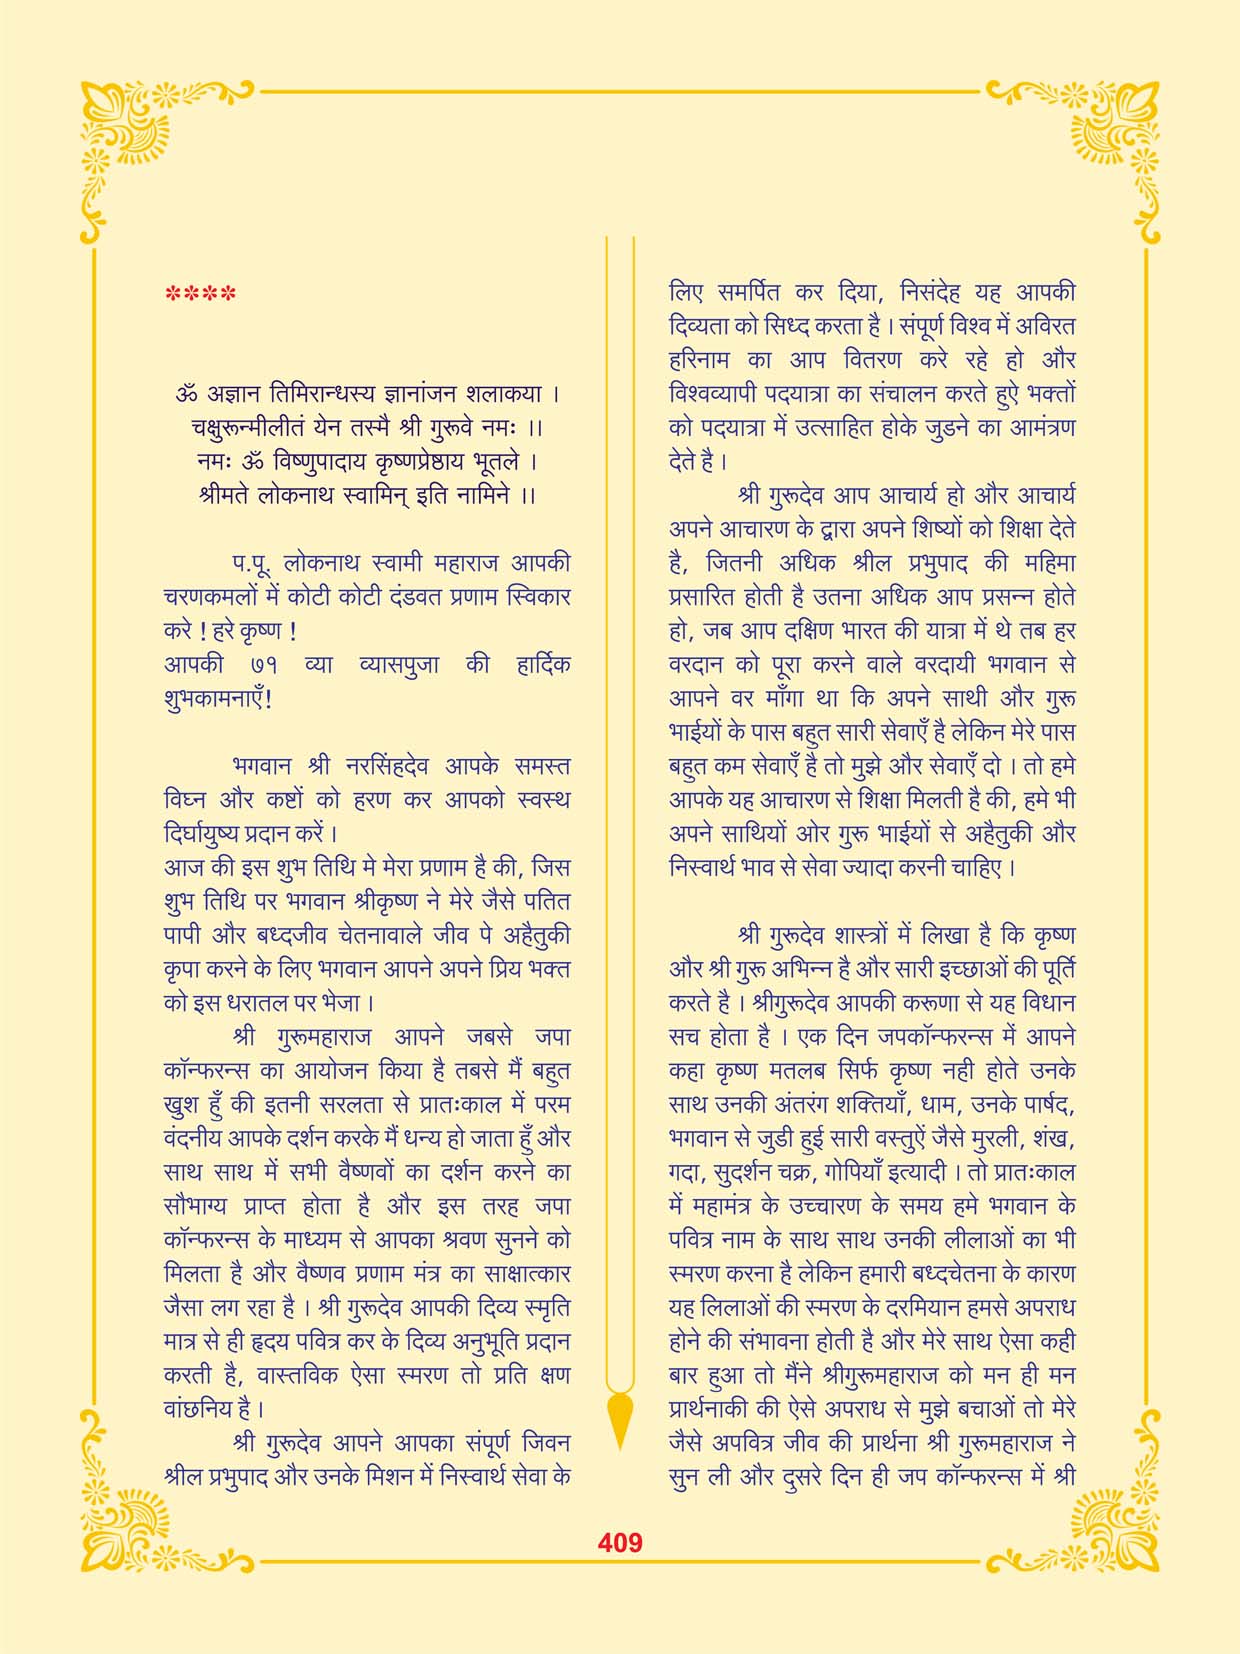 ****
ॐ अज्ञान तिमिरान्धस्य ज्ञानांजन शलाकया ।
चक्षुरून्मीलीतं येन तस्मै श्री गुरूवे नमः ।।
नमः ॐ विष्णुपादाय कृष्णप्रेष्ठाय भूतले ।
श्रीमते लोकनाथ स्वामिन् इति नामिने ।।
प.पू. लोकनाथ स्वामी महाराज आपकी
चरणकमलों में कोटी कोटी दंडवत प्रणाम स्विकार
करे ! हरे कृष्ण !
आपकी ७१ व्या व्यासपुजा की हार्दिक
शुभकामनाएँ!
भगवान श्री नरसिंहदेव आपके समस्त
विघ्न और कष्टों को हरण कर आपको स्वस्थ
दिर्घायुष्य प्रदान करें ।
आज की इस शुभ तिथि मे मेरा प्रणाम है की, जिस
शुभ तिथि पर भगवान श्रीकृष्ण ने मेरे जैसे पतित
पापी और बध्दजीव चेतनावाले जीव पे अहैतुकी
कृपा करने के लिए भगवान आपने अपने प्रिय भक्त
को इस धरातल पर भेजा ।
श्री गुरूमहाराज आपने जबसे जपा
कॉन्फरन्स का आयोजन किया है तबसे मैं बहुत
खुश हुँ की इतनी सरलता से प्रातःकाल में परम
वंदनीय आपके दर्शन करके मैं धन्य हो जाता हुँ और
साथ साथ में सभी वैष्णवों का दर्शन करने का
सौभाग्य प्राप्त होता है और इस तरह जपा
कॉन्फरन्स के माध्यम से आपका श्रवण सुनने को
मिलता है और वैष्णव प्रणाम मंत्र का साक्षात्कार
जैसा लग रहा है । श्री गुरूदेव आपकी दिव्य स्मृति
मात्र से ही हृदय पवित्र कर के दिव्य अनुभूति प्रदान
करती है, वास्तविक ऐसा स्मरण तो प्रति क्षण
वांछनिय है ।
श्री गुरूदेव आपने आपका संपूर्ण जिवन
श्रील प्रभुपाद और उनके मिशन में निस्वार्थ सेवा के
लिए समर्पित कर दिया, निसंदेह यह आपकी
दिव्यता को सिध्द करता है । संपूर्ण विश्व में अविरत
हरिनाम का आप वितरण करे रहे हो और
विश्वव्यापी पदयात्रा का संचालन करते हुऐ भक्तों
को पदयात्रा में उत्साहित होके जुडने का आमंत्रण
देते है ।
श्री गुरूदेव आप आचार्य हो और आचार्य
अपने आचारण के द्वारा अपने शिष्यों को शिक्षा देते
है, जितनी अधिक श्रील प्रभुपाद की महिमा
प्रसारित होती है उतना अधिक आप प्रसन्न होते
हो, जब आप दक्षिण भारत की यात्रा में थे तब हर
वरदान को पूरा करने वाले वरदायी भगवान से
आपने वर माँगा था कि अपने साथी और गुरू
भाईयों के पास बहुत सारी सेवाएँ है लेकिन मेरे पास
बहुत कम सेवाएँ है तो मुझे और सेवाएँ दो । तो हमे
आपके यह आचारण से शिक्षा मिलती है की, हमे भी
अपने साथियों ओर गुरू भाईयों से अहैतुकी और
निस्वार्थ भाव से सेवा ज्यादा करनी चाहिए ।
श्री गुरूदेव शास्त्रों में लिखा है कि कृष्ण
और श्री गुरू अभिन्न है और सारी इच्छाओं की पूर्ति
करते है । श्रीगुरूदेव आपकी करूणा से यह विधान
सच होता है । एक दिन जपकॉन्फरन्स में आपने
कहा कृष्ण मतलब सिर्फ कृष्ण नही होते उनके
साथ उनकी अंतरंग शक्तियाँ, धाम, उनके पार्षद,
भगवान से जुडी हुई सारी वस्तुऐं जैसे मुरली, शंख,
गदा, सुदर्शन चक्र, गोपियाँ इत्यादी । तो प्रातःकाल
में महामंत्र के उच्चारण के समय हमे भगवान के
पवित्र नाम के साथ साथ उनकी लीलाओं का भी
स्मरण करना है लेकिन हमारी बध्दचेतना के कारण
यह लिलाओं की स्मरण के दरमियान हमसे अपराध
होने की संभावना होती है और मेरे साथ ऐसा कही
बार हुआ तो मैंने श्रीगुरूमहाराज को मन ही मन
प्रार्थनाकी की ऐसे अपराध से मुझे बचाओं तो मेरे
जैसे अपवित्र जीव की प्रार्थना श्री गुरूमहाराज ने
सुन ली और दुसरे दिन ही जप कॉन्फरन्स में श्री
409